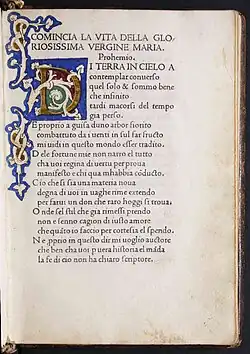 COMINCIA LA VITA DELLA GLO
RIOSISSIMA VERGINE MARIA.
Prohemio.
DI TERRA IN CIELO A
contemplar conuerso
quel solo & sommo bene
che infinito
tardi macorsi del tempo
gia perso.
E proprio a guisa duno arbor fiorito
combattuto da i uenti in sul far fructo
mi uidi in questo mondo esser tradito.
D ele fortune mie non narro el tutto
ma uoi regina di uertu per proua
manifesto e chi qua mhabbia códucto.
C io che si sia una materia noua
degna di uoi in uaghe rime extendo
per farui un don che raro hoggi si troua.
O nde sel stil che gia rimessi prendo
non e senno cagion di iusto amore
che quãto io faccio per cortesia el spendo.
N e pprio in questo dir mi uoglio auctore
che ben cha uoi puera historia el mãda
la fe di cio non ha chiaro scriptore.